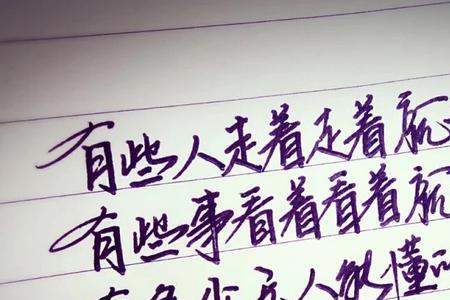 有些人走着走着就
有些事看着看着就
人能懂的